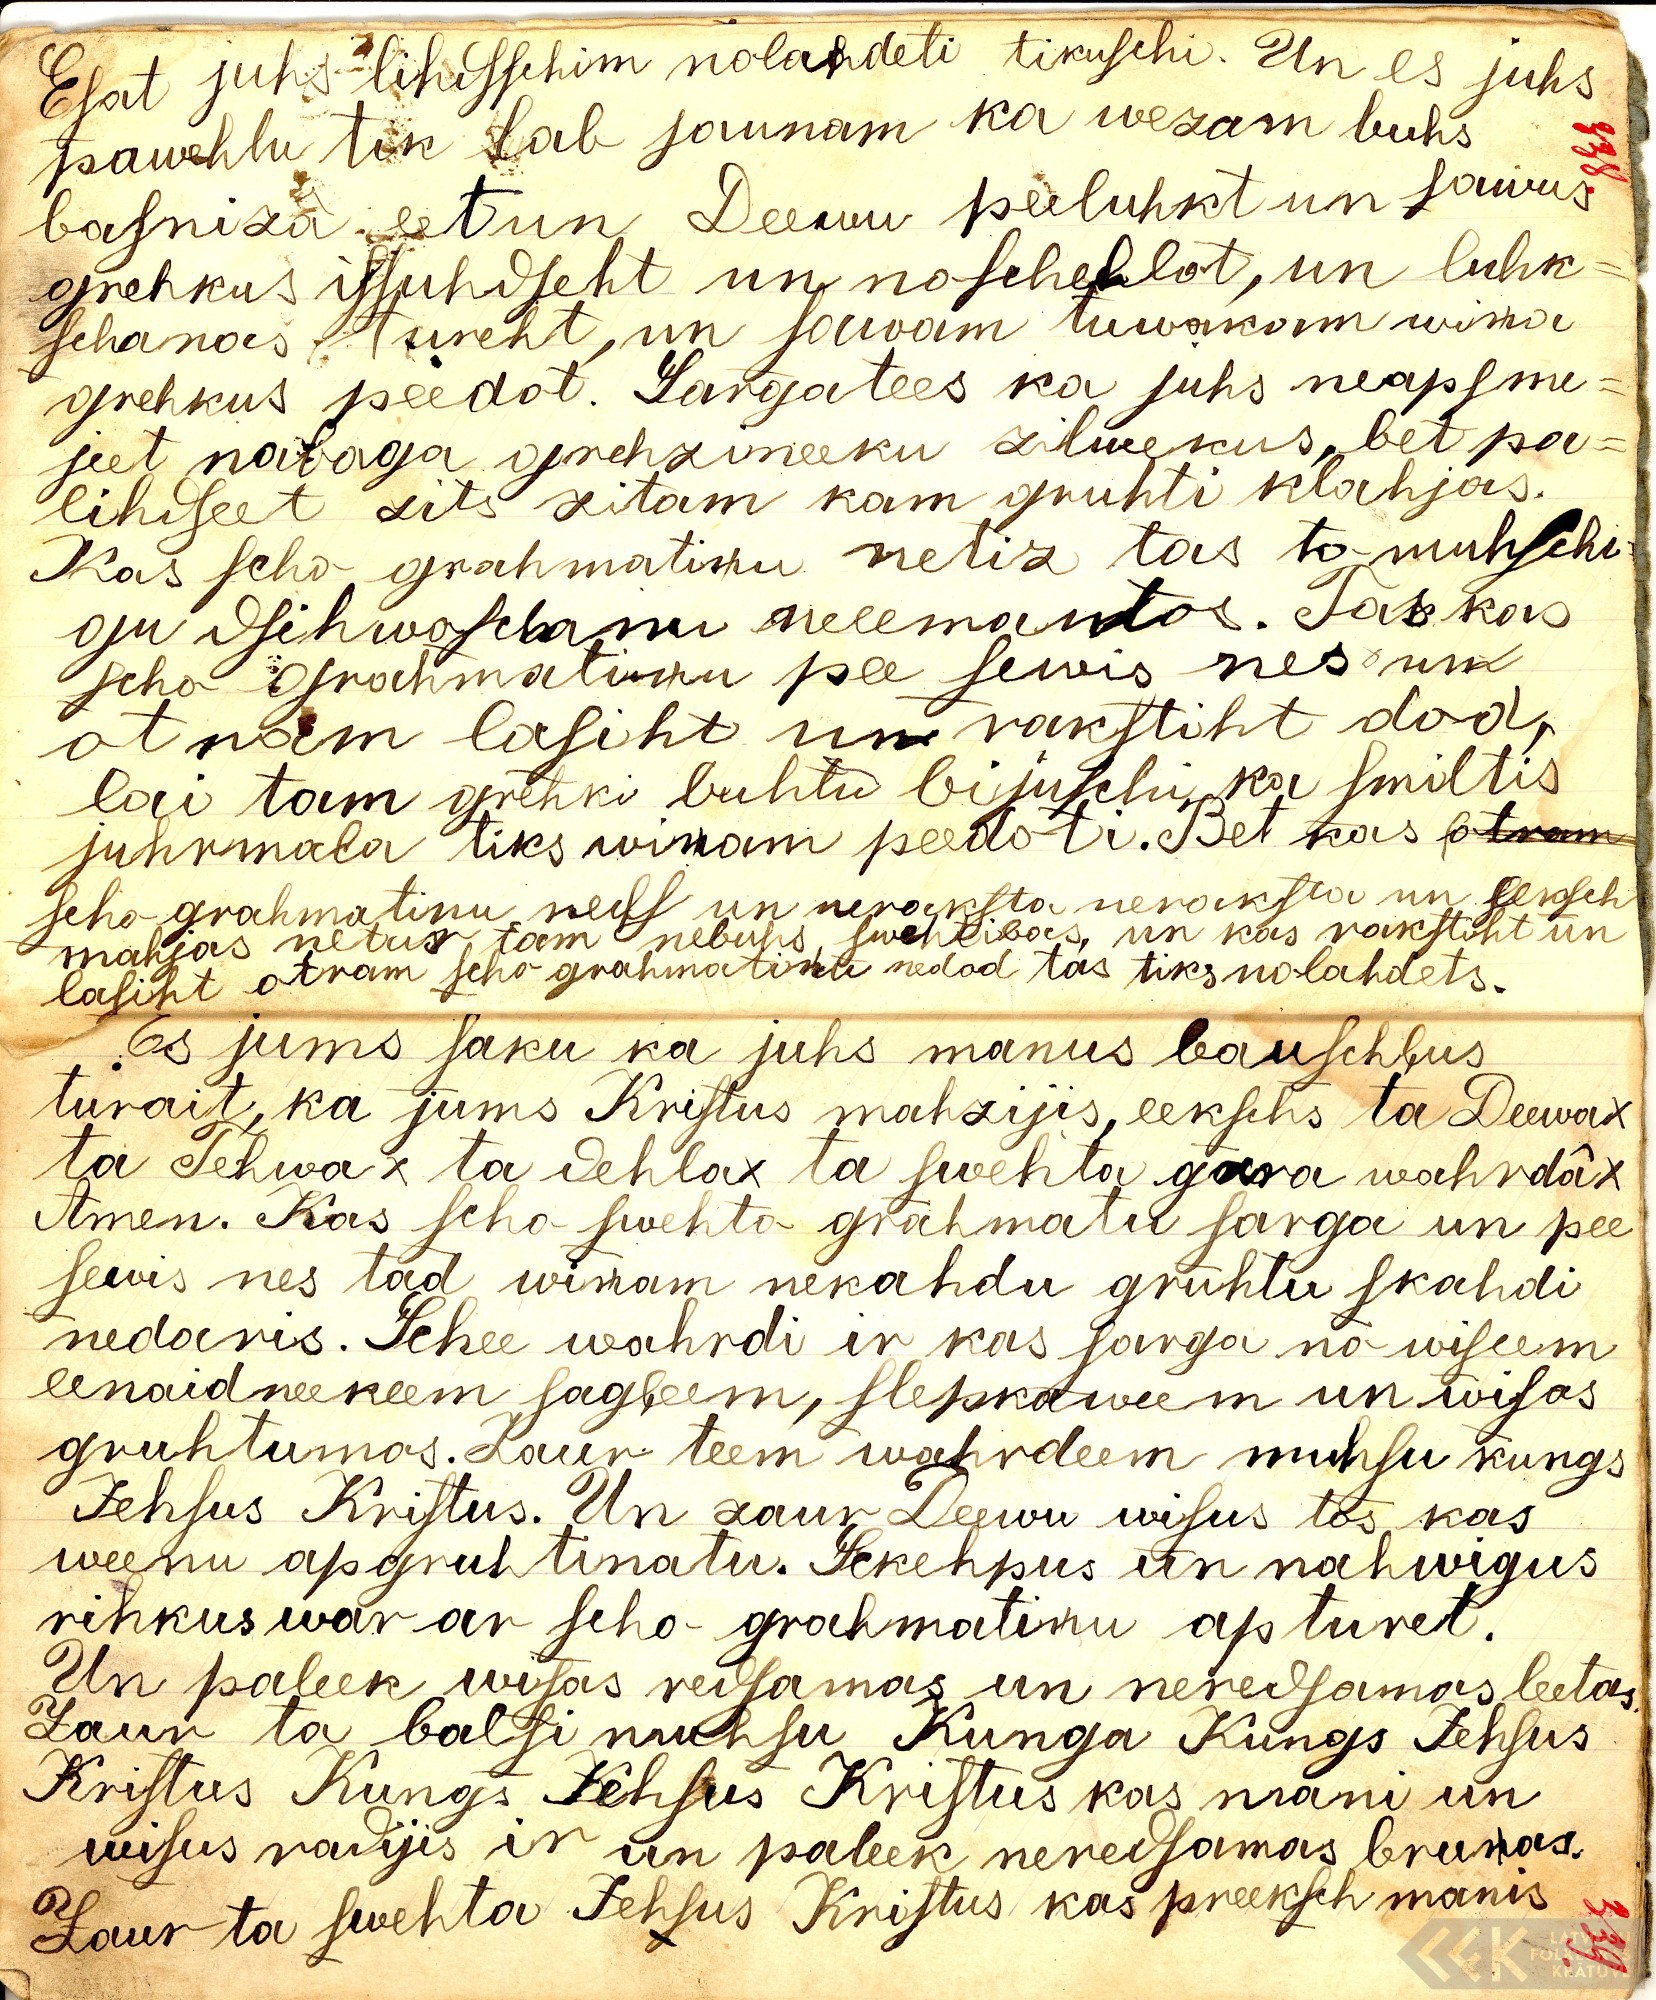 Esat juhs lihdsschim nolahdeti tikuschi. Un es juhs
pawehlu tik lab jaunam ka wezam buhs
basniza eet un Deewu peeluhkt un sawus
grehkus issuhdseht un noschehlot, un luhk=
schanas tureht, un sawam tuwakam wina
grehkus peedot. Sargatees ka juhs neapsme=
jeet nabaga grehzineeku zilwekus, bet pa=
lihdseet zits zitam kam gruhti klahjas.
Kas scho grahmatinu netiz tas to muhschi=
gu dsihwoschanu neeemantos. Tas kas
scho grahmatinu pee sewis nes un
otram lasiht un rakstiht dod,
lai tam grehki buhtu bijuschi ka smiltis
juhrmala tiks winam peedoti. Bet kas otram
scho grahmatinu neds un neraksta neraksta un eeksch
mahjas netur, tam nebuhs swehtibas, un kas rakstiht un
lasiht otram scho grahmatinu nedod tas tiks nolahdets.
Es jums saku ka juhs manus bauschlus
turait, ka jums Kristus mahzijis, eekschs ta Deewa x
ta Tehwa x ta dehla x ta swehta gara wahrdâ x
Amen. Kas scho swehto grahmatu sarga un pee
sewis nes tad winam nekahdu gruhtu skahdi
nedaris. Schee wahrdi ir kas sarga no wiseem
eenaidneekeem sagleem, slepkaweem un wisas
gruhtumas. Zaur teem wahrdeem muhsu kungs
Jehsus Kristus. Un zaur Deewu wisus tos kas
weenu apgruhtinatu. Sckehpus un nahwigus
rihkus war ar scho grahmatinu apturet.
Un paleek wisas redsamas un neredsamas leetas.
Zaur ta balsi muhsu Kunga Kungs Jehsus
Kristus Kungs Jehsus Kristus kas mani un
wisus radijis ir un paleek neredsamas brunas.
Zaur ta swehta Jehsus Kristus kas preeksch manis